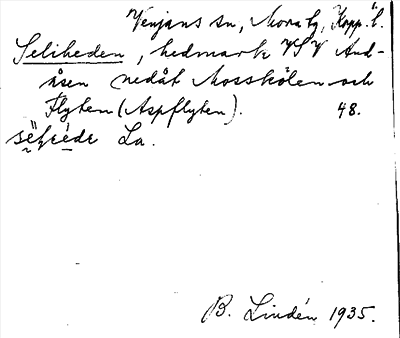 Venjans sn, Mora tg, Kopp. l.
Seliheden, hedmark VSV And-
åsen nedåt Mosskölen och
Flyten (Aspflyten). 48.
La.
B. Lindén 1935.